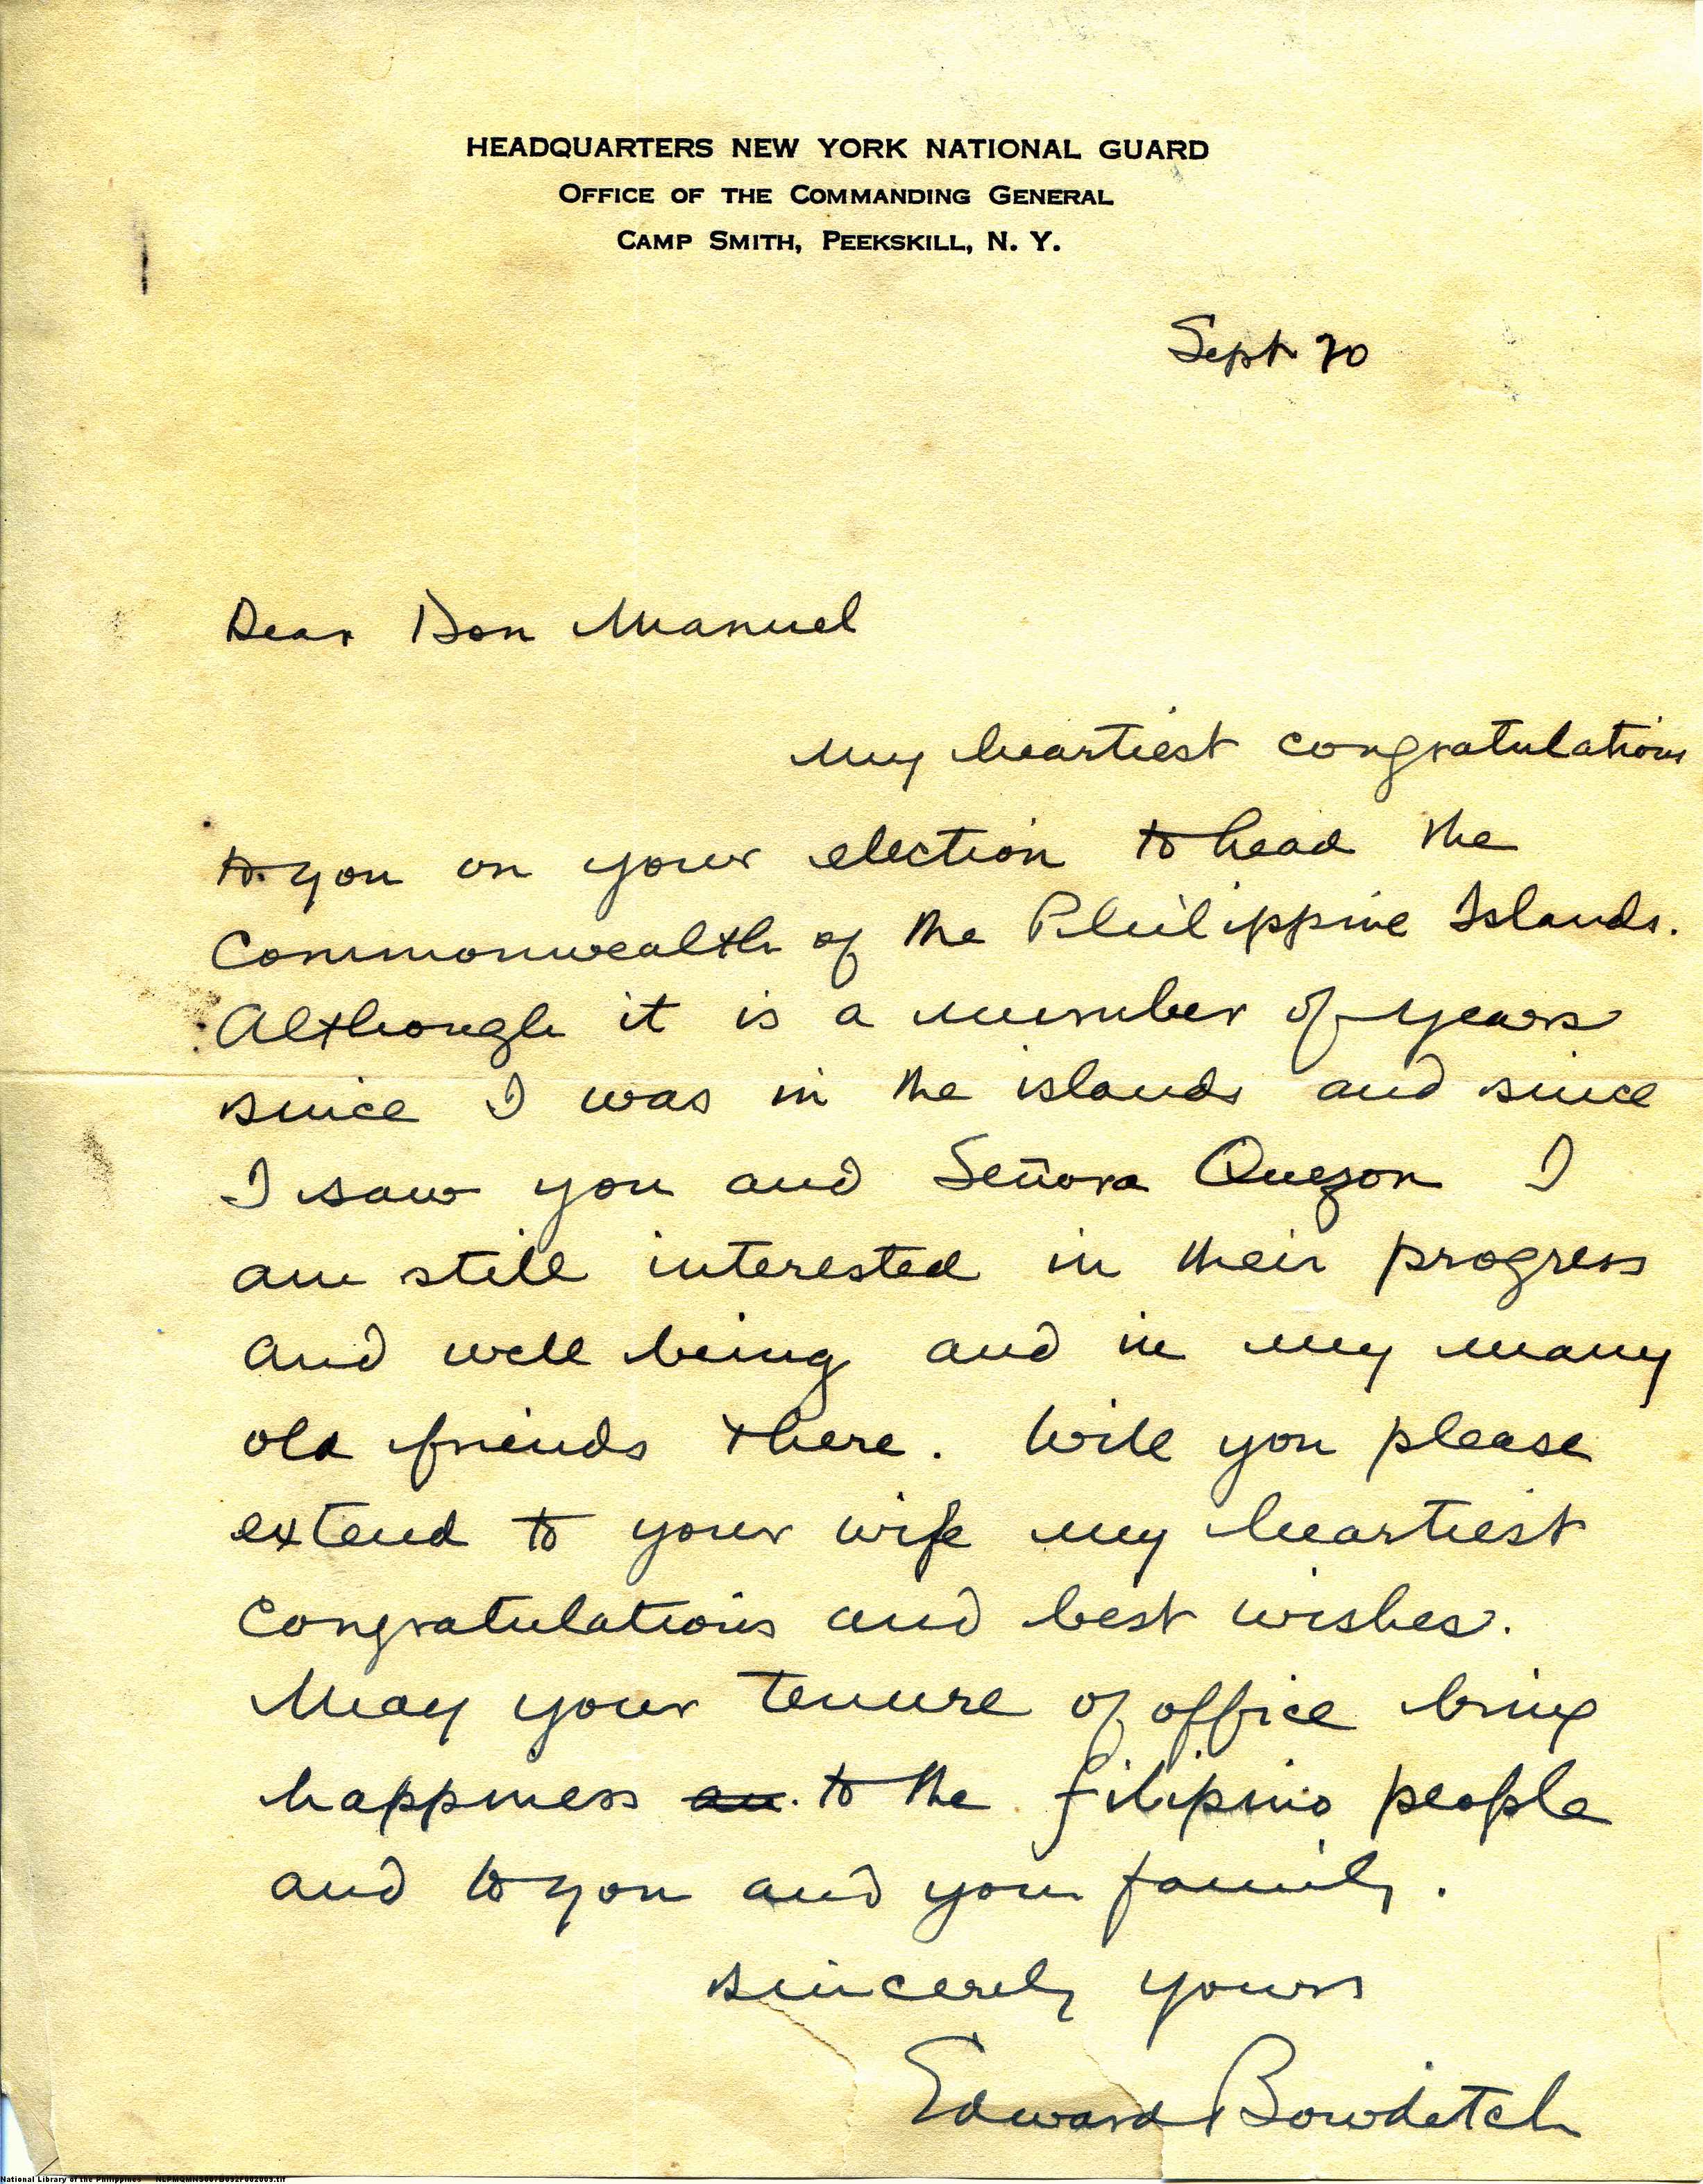 HEADQUARTERS NEW YORK NATIONAL GUARD
OFFICE OF THE COMMANDING GENERAL
CAMP SMITH, PEEKSKILL, N. Y.
Sept 20
Dear Don Manuel
My heartiest congratulations
to you on your election to head the
Commonwealth of the Philippine Islands.
Although it is a number of years
since I was in the islands and since
I saw you and Señora Quezon I
am still interested in their progress
and well being and in my many
old friends there. Will you please
extend to your wife my heartiest
congratulations and best wishes.
May your tenure of office bring
happiness an. to the filipino people
and to you and your family.
sincerely yours
Edward Bowditch
National Library of the Philippines